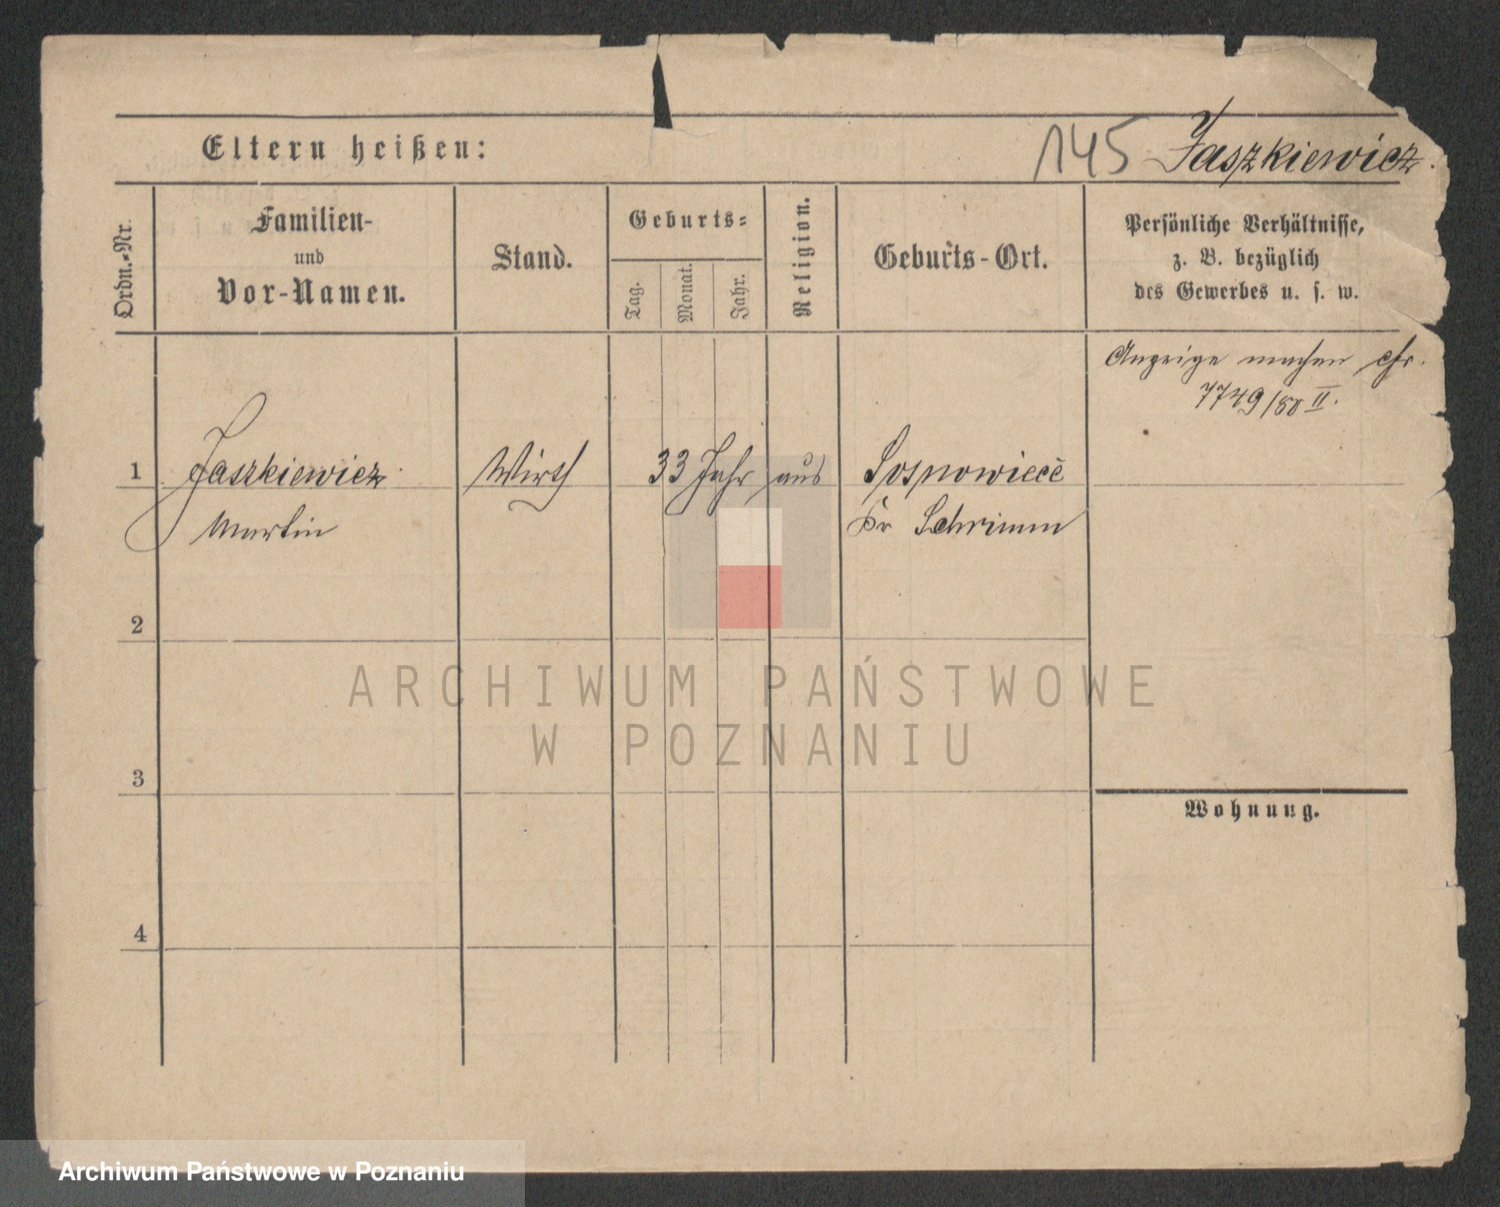 Eltern heißen:
145 Jaszkiewicz.
Ordn.-Nr.
Familien-
und
Vor-Namen.
Stand.
Geburts-
Tag.
Monat.
Jahr.
Religion.
Geburts-Ort.
Persönliche Verhältnisse,
z. B. bezüglich
des Gewerbes u. s. w.
Anzeige machen
7749/80 II.
1 Jaszkiewicz Wirth 33 Jahr aus
Martin Kr Schrimm
2
3
4
Wohnung.
ARCHIWUM PAŃSTWOWE
W POZNANIU
Archiwum Państwowe w Poznaniu